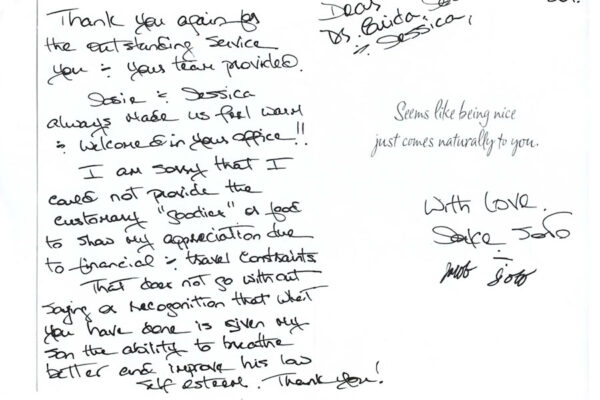 Thank you again for
the outstanding service
you & your team provided.
Josie & Jessica
always made us feel warm
& welcomed in your office!!
I am sorry that I
could not provide the
customary "goodies" of food
to show my appreciation due
to financial & travel constraints
That does not go without
saying a recognition that what
you have done is given my
son the ability to breathe
better and improve his low
self esteem. Thank you!
Dear
Dr. Guida,
& Jessica,
Seems like being nice
just comes naturally to you.
With Love.
&
Soto